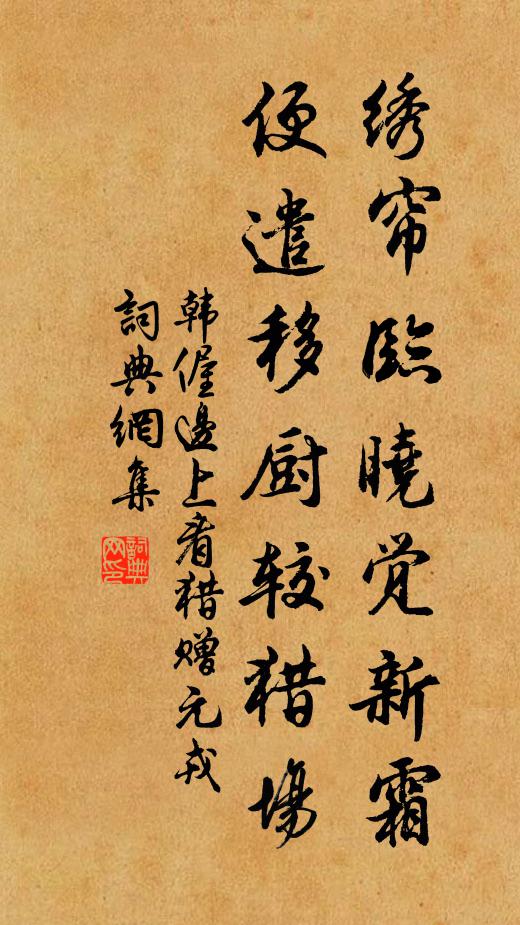 绣帘临曉觉新霜
便遣移厨较猎場
韩偓邊上看猎赠元戎
詞典網集
詞典网印